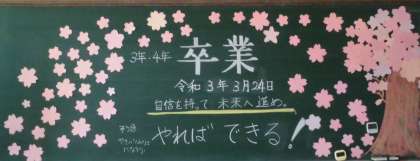 3年・4年 卒業
令和3年3月24日
自信を持って 未来へ進め。
やれば できる!